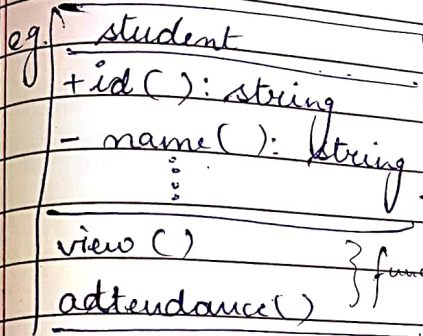 eg. student
+ id ( ) : string
- name ( ) : string
view ( )
adtendance ( )